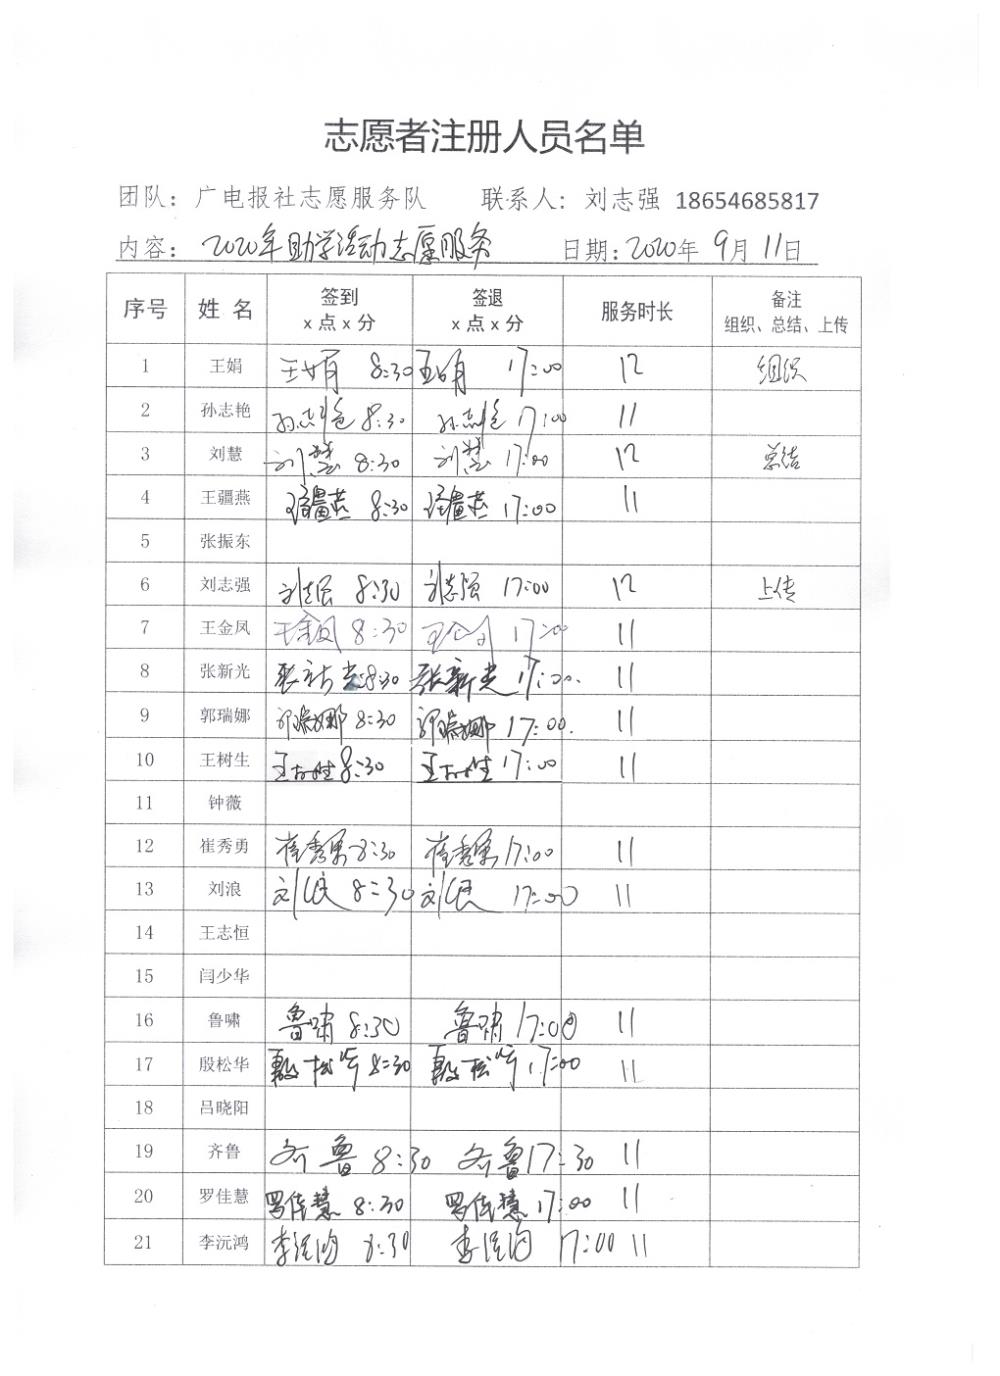 志愿者注册人员名单
团队：广电报社志愿服务队 联系人：刘志强 18654685817
内容：2020年助学活动志愿服务 日期：2020年 9月 11日
序号 姓 名 签到 x 点 x 分 签退 x 点 x 分 服务时长 备注 组织、总结、上传
1 王娟 王娟 8:30 王娟 17:00 12 组织
2 孙志艳 孙志艳 8:30 孙志艳 17:00 11
3 刘慧 刘慧 8:30 刘慧 17:00 12 总结
4 王疆燕 王疆燕 8:30 王疆燕 17:00 11
5 张振东
6 刘志强 刘志强 8:30 刘志强 17:00 12 上传
7 王金凤 王金凤 8:30 王金凤 17:00 11
8 张新光 张新光 8:30 张新光 17:00. 11
9 郭瑞娜 郭瑞娜 8:30 郭瑞娜 17:00. 11
10 王树生 王树生 8:30 王树生 17:00 11
11 钟薇
12 崔秀勇 崔秀勇 8:30 崔秀勇 17:00 11
13 刘浪 刘浪 8:30 刘浪 17:00 11
14 王志恒
15 闫少华
16 鲁啸 鲁啸 8:30 鲁啸 17:00 11
17 殷松华 殷松华 8:30 殷松华 17:00 11
18 吕晓阳
19 齐鲁 齐鲁 8:30 齐鲁 17:30 11
20 罗佳慧 罗佳慧 8:30 罗佳慧 17:00 11
21 李沅鸿 李沅鸿 8:30 李沅鸿 17:00 11